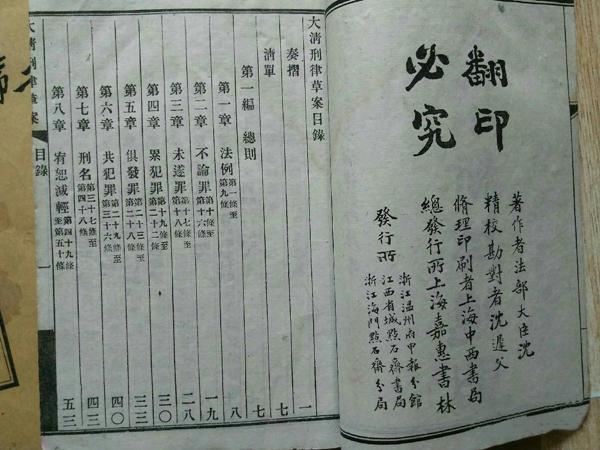 翻印
必究
著作者法部大臣沈
精校勘對者沈遲父
脩理印刷者上海中西書局
總發行所上海嘉惠書林
發行所
浙江温州府甲報分館
江西省城點石齋書局
浙江海門點石齋分局
大清刑律草案目錄
奏摺 一
清單 七
第一編 總則 七
第一章 法例 第一條至第九條 八
第二章 不論罪 第十條至第十六條 一九
第三章 未遂罪 第十七條至第十八條 二八
第四章 累犯罪 第十九條至第二十二條 三二
第五章 俱發罪 第二十三條至第二十八條 三三
第六章 共犯罪 第二十九條至第三十六條 四〇
第七章 刑名 第三十七條至第四十八條 四三
第八章 宥恕減輕 第四十九條至第五十條 五三
大清刑律草案 目錄 一